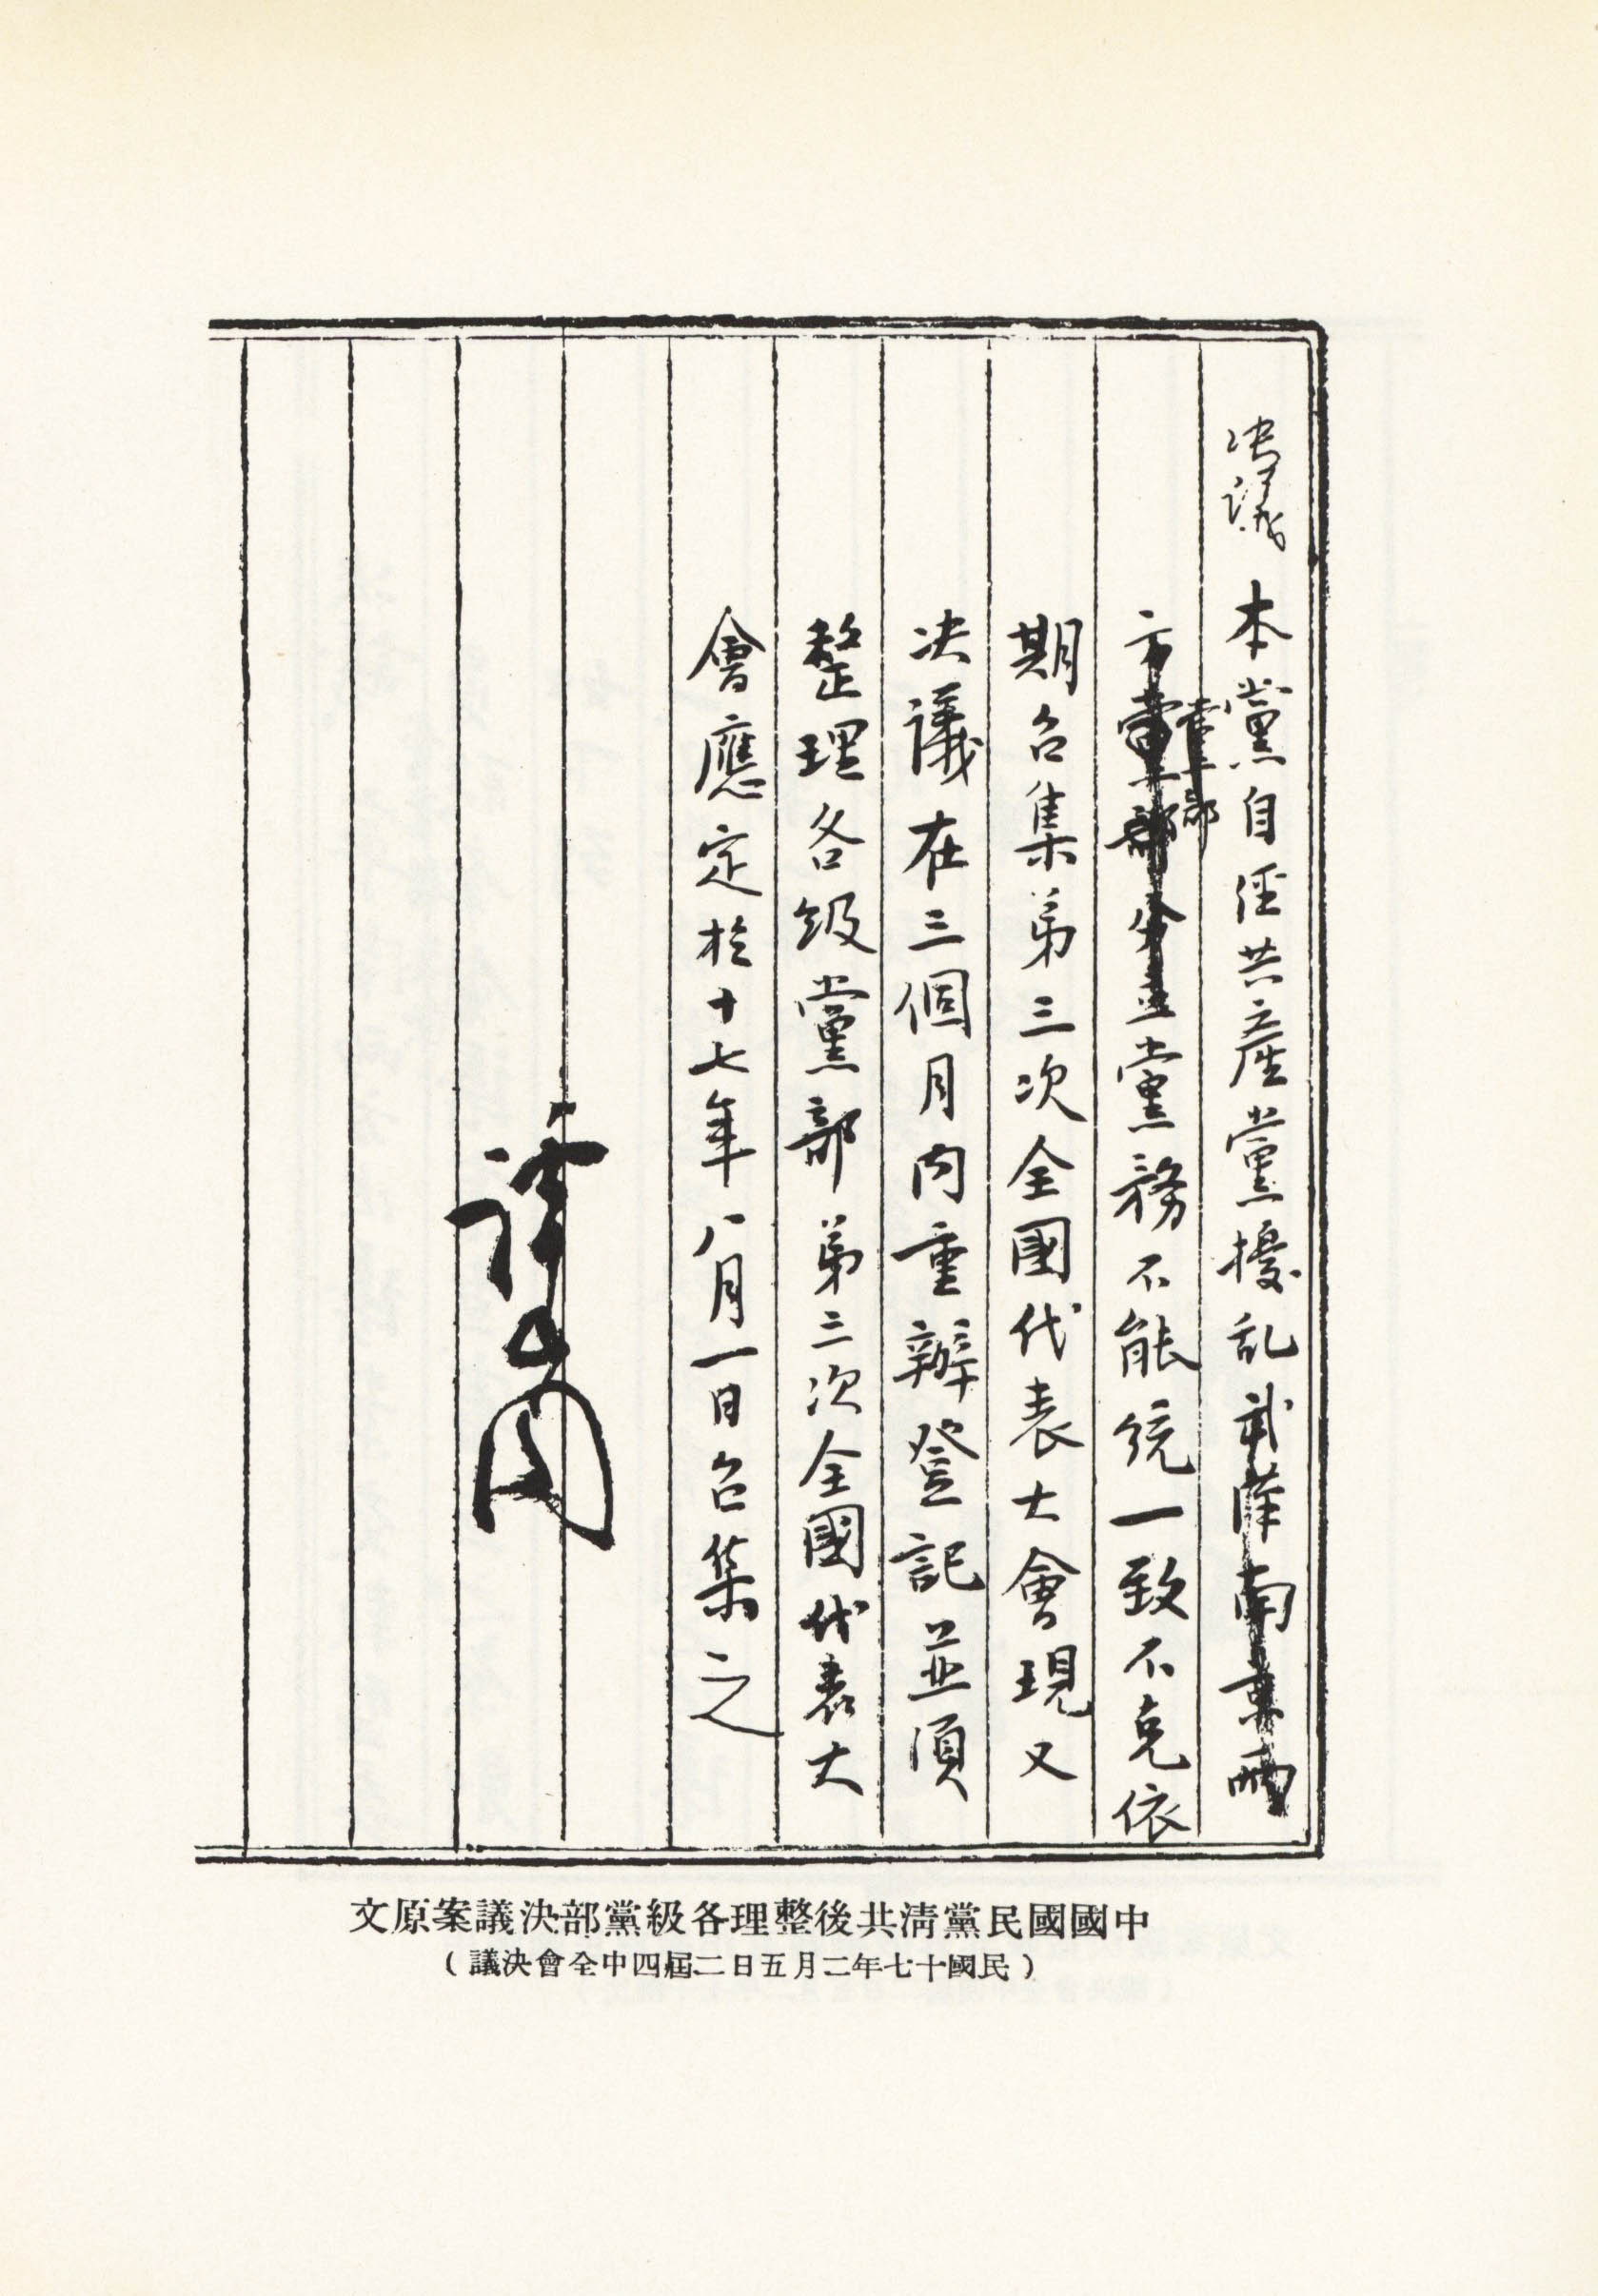 決議
本黨自經共產黨擾乱武漢南京兩
方黨部分立黨務不能統一致不克依
黨部
期召集第三次全國代表大會現又
决議在三個月內重辦登記並須
整理各級黨部第三次全國代表大
會應定於十七年八月一日召集之
文原案議決部黨級各理整後共清黨民國國中
（議決會全中四屆二日五月二年七十國民）